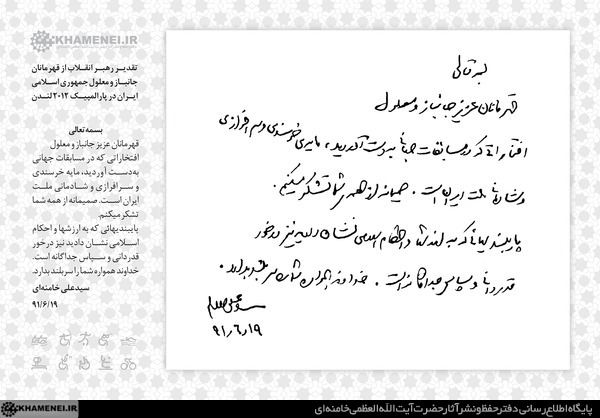 KHAMENEI.IR
تقدیر رهبر انقلاب از قهرمانان
جانباز و معلول جمهوری اسلامی
ایران در پارالمپیک ۲۰۱۲ لندن
بسمه‌تعالی
قهرمانان عزیز جانباز و معلول
افتخاراتی که در مسابقات جهانی
به‌دست آوردید، مایه خرسندی
و سرافرازی و شادمانی ملت
ایران است. صمیمانه از همه شما
تشکر میکنم.
پایبندیهائی که به ارزشها و احکام
اسلامی نشان دادید نیز در خور
قدردانی و سپاس جداگانه است.
خداوند همواره شما را سربلند بدارد.
سیدعلی خامنه‌ای
۹۱/۶/۱۹
بسمه تعالی
قهرمانان عزیز جانباز و معلول
افتخاراتی که در مسابقات جهانی بدست آوردید، مایه‌ی خرسندی و سرافرازی
و شادمانی ملت ایران است. صمیمانه از همه‌ی شما تشکر میکنم.
پایبندیهائی که به ارزشها و احکام اسلامی نشان دادید نیز در خور
قدردانی و سپاس جداگانه است. خداوند همواره شما را سربلند بدارد.
۹۱٫۶٫۱۹
KHAMENEI.IR
پایگاه اطلاع‌رسانی دفتر حفظ و نشر آثار حضرت آیت‌الله‌العظمی خامنه‌ای